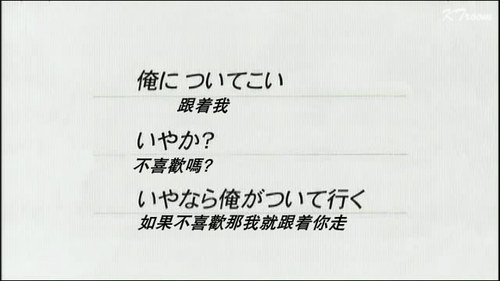 K Troom
俺に ついてこい
跟着我
いやか?
不喜歡嗎?
いやなら俺がついて行く
如果不喜歡那我就跟着你走